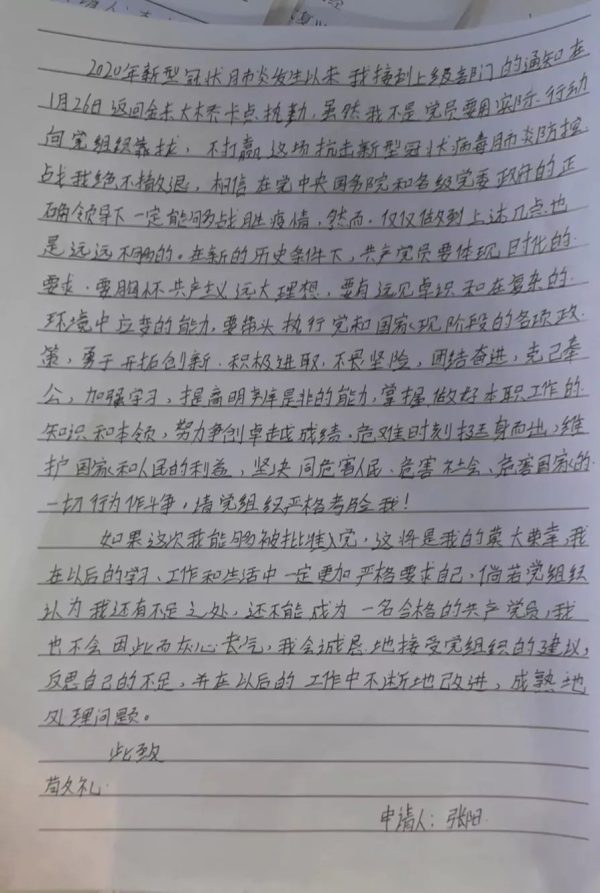 2020年新型冠状肺炎发生以来我接到上级部门的通知在
1月26日返回金末大桥卡点执勤,虽然我不是党员要用实际行动
向党组织靠拢,不打赢这场抗击新型冠状病毒肺炎防控
战我绝不撤退,相信在党中央国务院和各级党委政府的正
确领导下一定能够战胜疫情,然而,仅仅做到上述几点也
是远远不够的。在新的历史条件下,共产党员要体现时代的
要求,要胸怀共产主义远大理想,要有远见卓识和在复杂的
环境中应变的能力,要带头执行党和国家现阶段的各项政
策,勇于开拓创新.积极进取,不畏坚险,团结奋进,克己奉
公,加强学习,提高明辨是非的能力,掌握做好本职工作的
知识和本领,努力争创卓越成绩,危难时刻挺身而出,维
护国家和人民的利益,坚决同危害人民、危害社会、危害国家的
一切行为作斗争,请党组织严格考验我!
如果这次我能够被批准入党,这将是我的莫大荣幸,我
在以后的学习、工作和生活中一定更加严格要求自己,倘若党组织
认为我还有不足之处,还不能成为一名合格的共产党员,我
也不会因此而灰心丧气,我会诚恳地接受党组织的建议,
反思自己的不足,并在以后的工作中不断地改进,成熟地
处理问题。
此致
敬礼
申请人:张阳